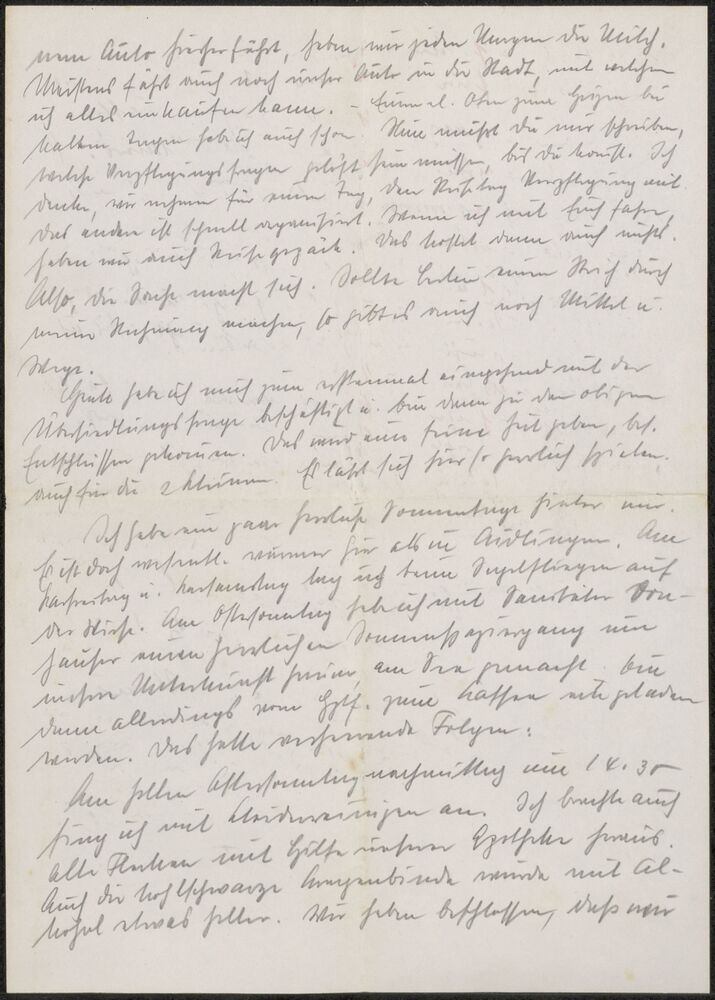 nem Auto hierher fährt, haben wir jeden Morgen die Milch.
Meistens fährt auch noch unser Auto in die Stadt, mit welchem
ich alles einkaufen kann. – Eunal. Ofen zum Heizen bei
kalten Tagen habe ich auch schon. Nun müßt Du mir schreiben,
welche Verpflegungsfragen gelöst sein müssen, bis Du kommst. Ich
denke, wir nehmen für einen Tag, den Reisetag Verpflegung mit.
Das andere ist schnell organisiert. Wenn ich mit Euch fahre,
haben wir auch Reisegepäck. Das kostet dann auch nichts.
Also, die Sache macht sich. Sollte Berlin einen Strich durch
meine Rechnung machen, so gibt es auch noch Mittel u.
Wege.
Heute habe ich mich zum erstenmal eingehend mit der
Übersiedlungsfrage beschäftigt u. bin dann zu den obigen
Entschlüssen gekommen. Das wird eine feine Zeit geben, bes.
auch für die 2 Kleinen. Es läßt sich hier so herrlich spielen.
Ich habe ein paar herrliche Sonnentage hinter mir.
Es ist doch wesentl. wärmer hier als in Aidlingen. Am
Karfreitag u. Karsamstag lag ich beim Segelfliegen auf
der Wiese. Am Ostersonntag habe ich mit Sanitäter Don-
häuser einen herrlichen Sonnenspaziergang um
unsere Unterkunft herum, am See gemacht. bin
dann allerdings vom Hptf. zum Kaffee eingeladen
worden. Das hatte verheerende Folgen:
Am selben Ostersonntagnachmittag um 14.30
fing ich mit Kleiderreinigen an. Ich brachte auch
alle Flecken mit Hilfe unserer Apotheke heraus.
Auch die kohlschwarze Armbinde wurde mit Al-
kohol etwas heller. Wir haben beschlossen, daß wir